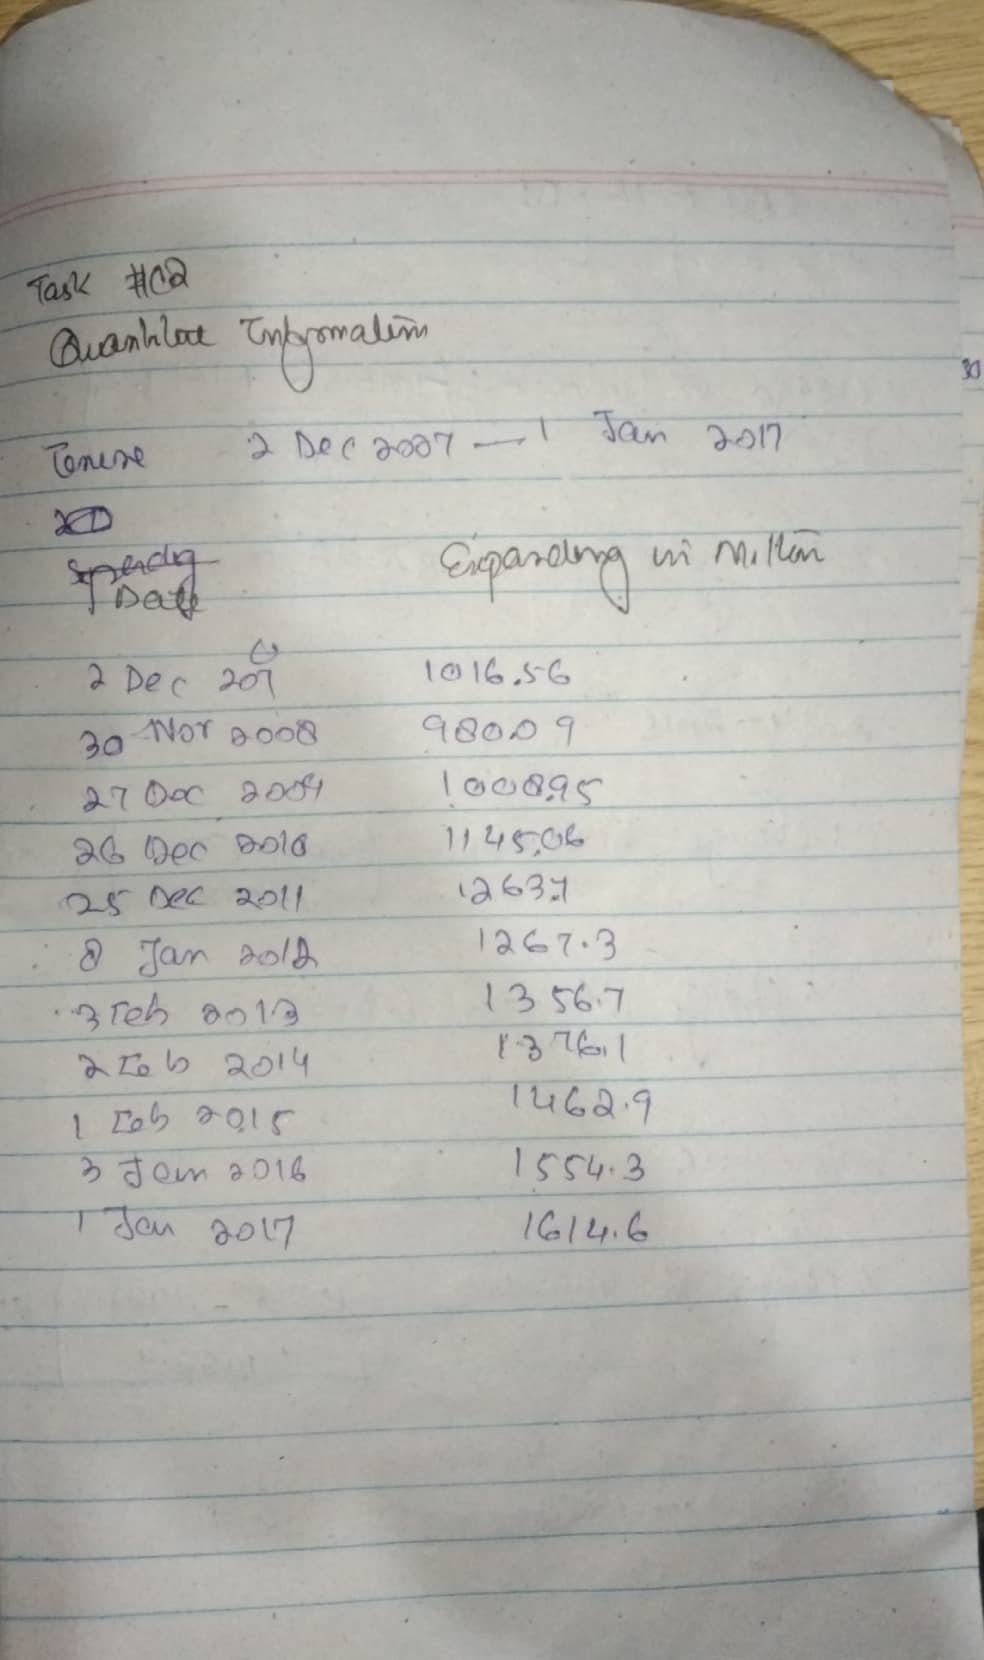 Task #02
Quantitat Information
Tenure 2 Dec 2007 — 1 Jan 2017
Date Expanding in Million
2 Dec 2007 1016.56
30 Nov 2008 980.09
27 Dec 2009 1008.95
26 Dec 2010 1145.06
25 Dec 2011 1263.7
8 Jan 2012 1267.3
3 Feb 2013 1356.7
2 Feb 2014 1376.1
1 Feb 2015 1462.9
3 Jan 2016 1554.3
1 Jan 2017 1614.6
30